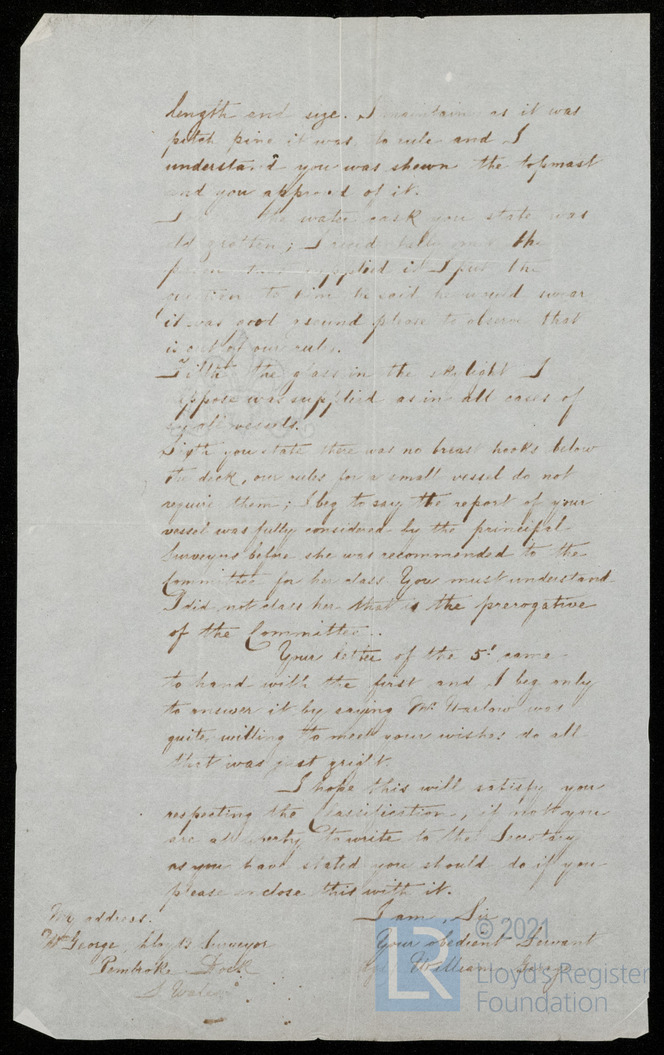 length and size. I maintain as it was
pitch pine it was to rule and I
understand you was shewn the topmast
and you approved of it.
the water cask you state was
old & rotten; I accidentally the
supplied it I put the
question to him he said he would swear
it was good & sound please to observe that
is out of our rules.
Fifth the glass in the skylight I
suppose was supplied as in all cases of
vessels.
Sixth you state there was no breast hooks below
the deck, our rules for a small vessel do not
require them; I beg to say the report of your
vessel was fully considered by the principal
Surveyors before she was recommended to the
Committee for her class You must understand
I did not class her that is the prerogative
of the Committee.
Your letter of the 5th came
to hand with the first and I beg only
to answer it by saying Mr Warlow was
quite willing to meet your wishes & do all
that was just & right.
I hope this will satisfy you
respecting the Classification, if not you
are at liberty to write to the Secretary
as you have stated you should do if you
please enclose this with it.
I am, Sir
Your obedient Servant
William George
My address.
Wm George, Lloyds Surveyor
Pembroke Dock
S. Wales
© 2021
LR
Lloyd's Register
Foundation